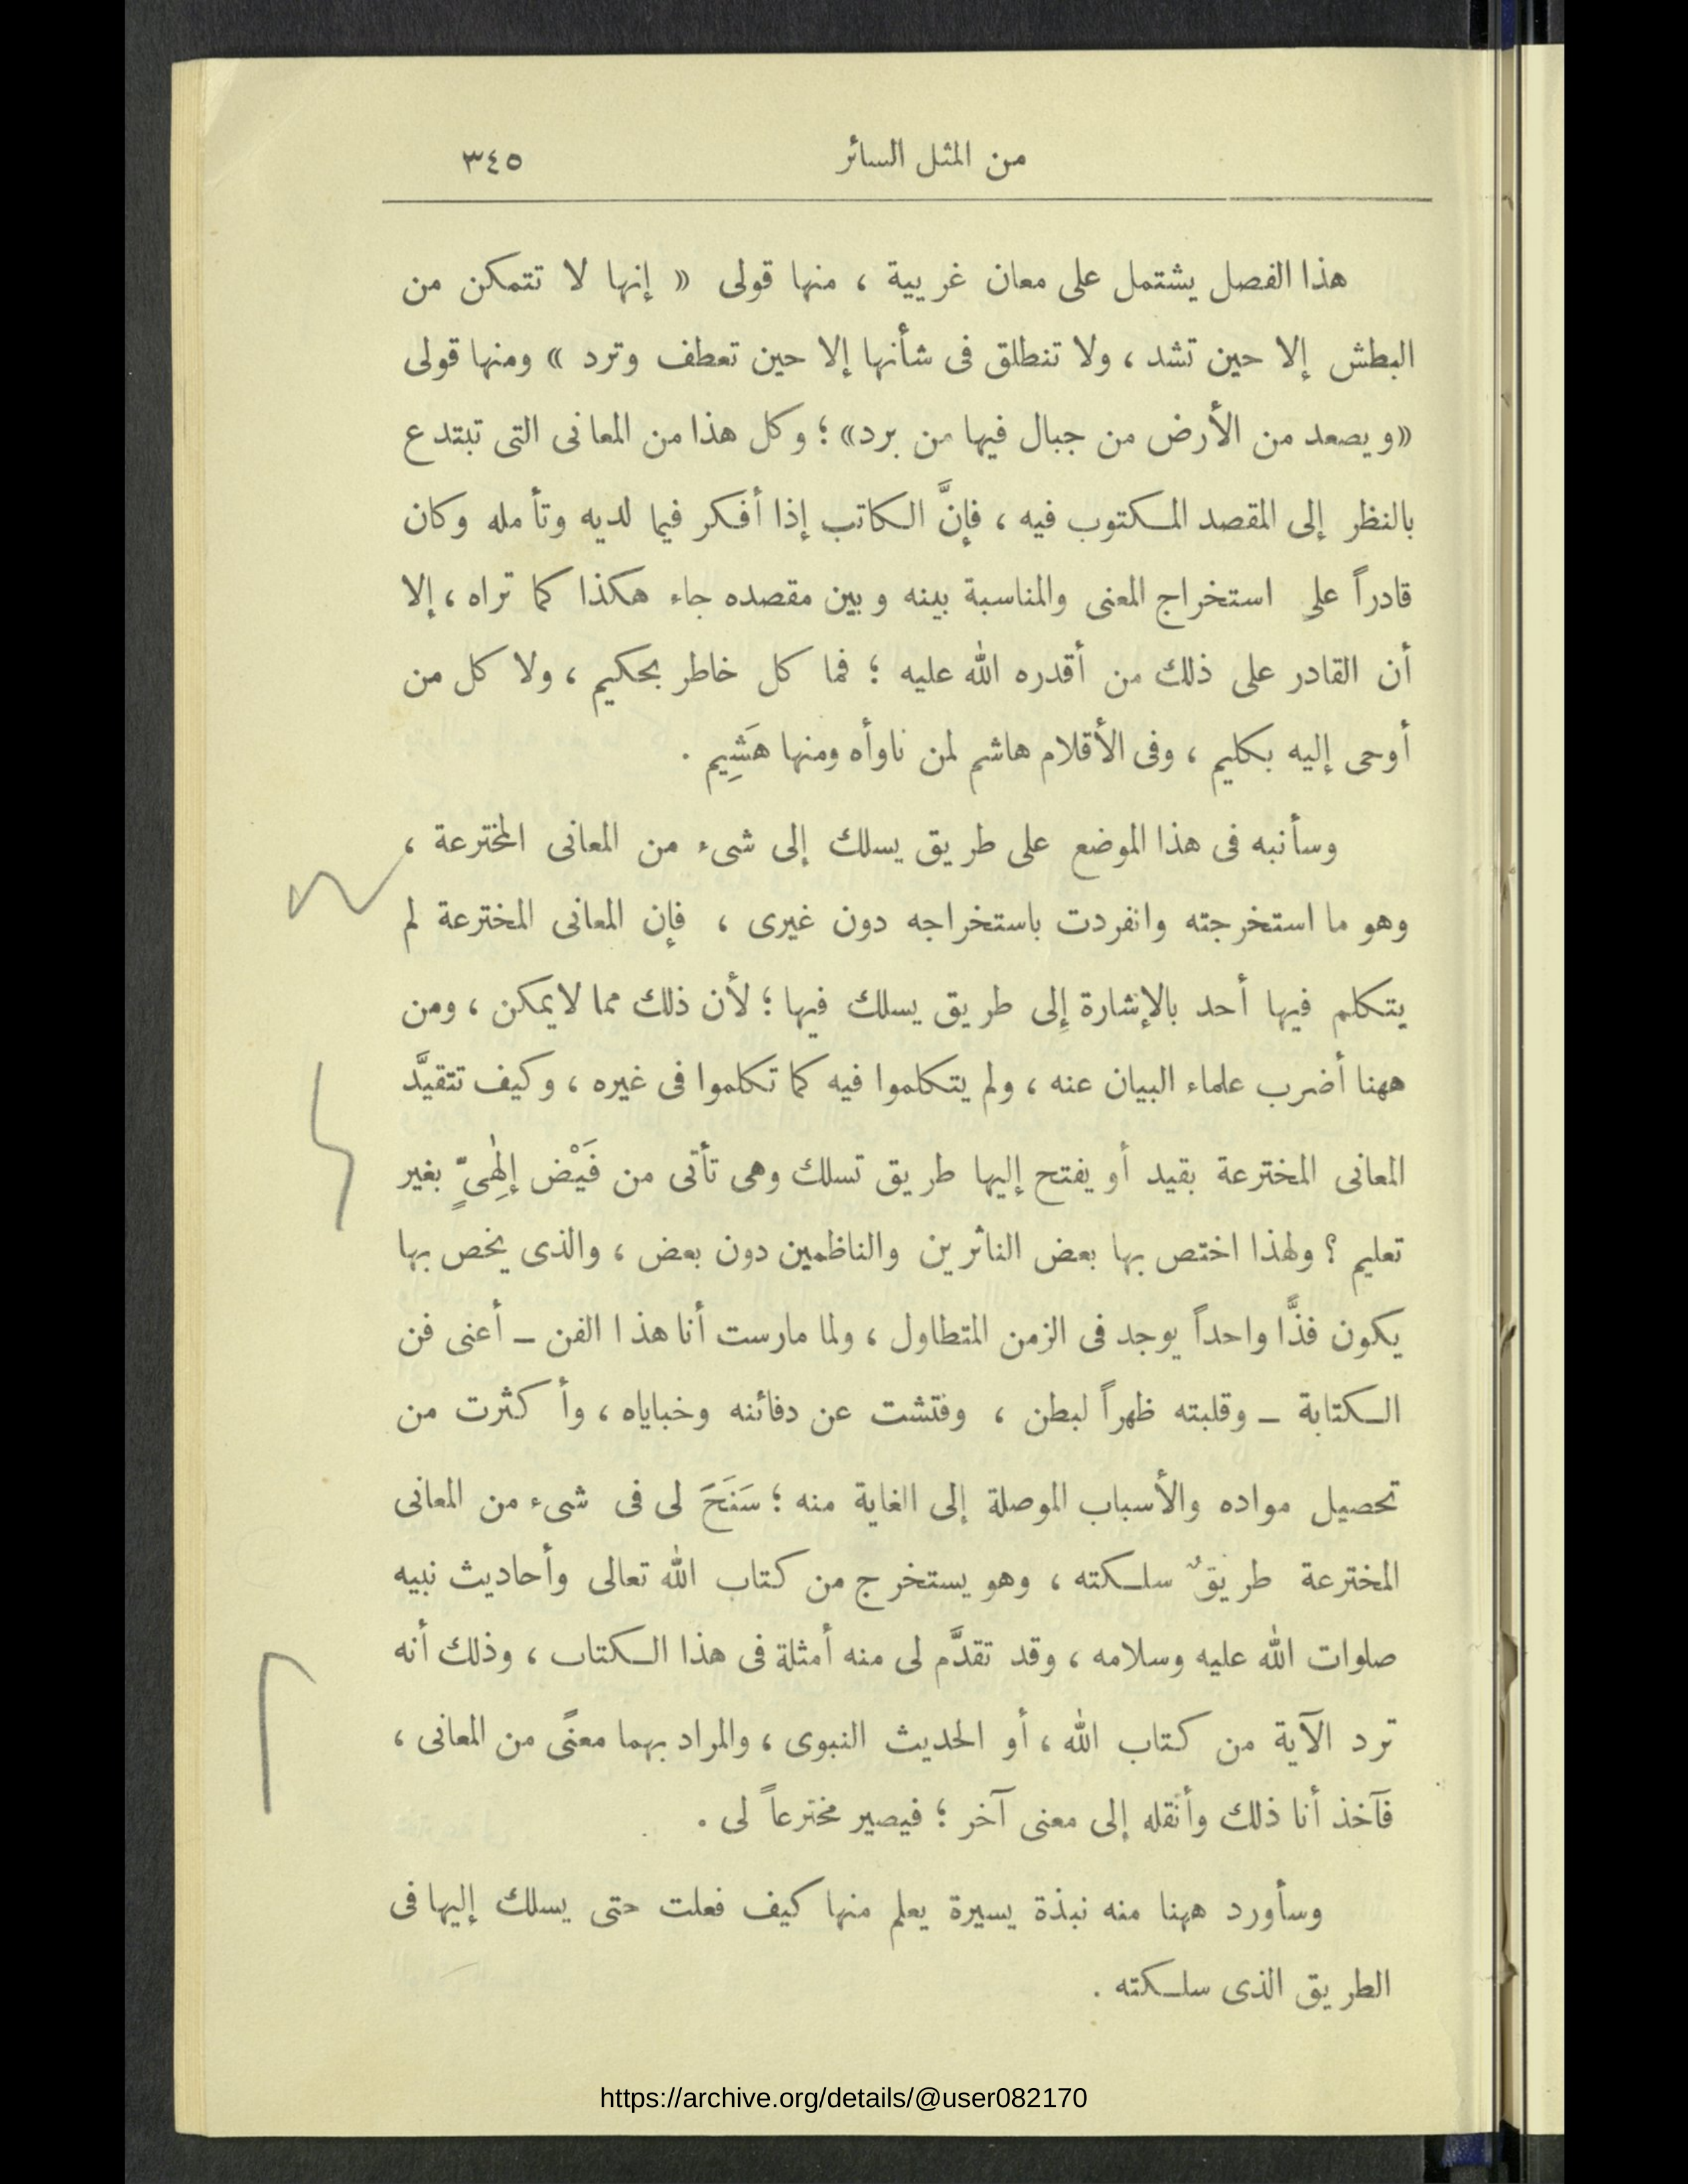 من المثل السائر ٣٤٥
هذا الفصل يشتمل على معان غريبة ، منها قولى « إنها لا تتمكن من
البطش إلا حين تشد ، ولا تنطلق فى شأنها إلا حين تعطف وترد » ومنها قولى
«ويصعد من الأرض من جبال فيها من برد» ؛ وكل هذا من المعانى التى تبتدع
بالنظر إلى المقصد المكتوب فيه ، فإنَّ الكاتب إذا أفكر فيما لديه وتأمله وكان
قادراً على استخراج المعنى والمناسبة بينه وبين مقصده جاء هكذا كما تراه ، إلا
أن القادر على ذلك من أقدره الله عليه ؛ فما كل خاطر بحكيم ، ولا كل من
أوحى إليه بكليم ، وفى الأقلام هاشم لمن ناوأه ومنها هَشِيم .
وسأنبه فى هذا الموضع على طريق يسلك إلى شىء من المعانى المخترعة ،
وهو ما استخرجته وانفردت باستخراجه دون غيرى ، فإن المعانى المخترعة لم
يتكلم فيها أحد بالإشارة إلى طريق يسلك فيها ؛ لأن ذلك مما لايمكن ، ومن
ههنا أضرب علماء البيان عنه ، ولم يتكلموا فيه كما تكلموا فى غيره ، وكيف تتقيَّد
المعانى المخترعة بقيد أو يفتح إليها طريق تسلك وهى تأتى من فَيْض إلٰهِىٍّ بغير
تعليم ؟ ولهذا اختص بها بعض الناثرين والناظمين دون بعض ، والذى يخص بها
يكون فذًّا واحداً يوجد فى الزمن المتطاول ، ولما مارست أنا هذا الفن – أعنى فن
الكتابة – وقلبته ظهراً لبطن ، وفتشت عن دفائنه وخباياه ، وأكثرت من
تحصيل مواده والأسباب الموصلة إلى الغاية منه ؛ سَنَحَ لى فى شىء من المعانى
المخترعة طريقٌ سلكته ، وهو يستخرج من كتاب الله تعالى وأحاديث نبيه
صلوات الله عليه وسلامه ، وقد تقدَّم لى منه أمثلة فى هذا الكتاب ، وذلك أنه
ترد الآية من كتاب الله ، أو الحديث النبوى ، والمراد بهما معنًى من المعانى ،
فآخذ أنا ذلك وأنقله إلى معنى آخر ؛ فيصير مخترعاً لى .
وسأورد ههنا منه نبذة يسيرة يعلم منها كيف فعلت حتى يسلك إليها فى
الطريق الذى سلكته .
https://archive.org/details/@user082170